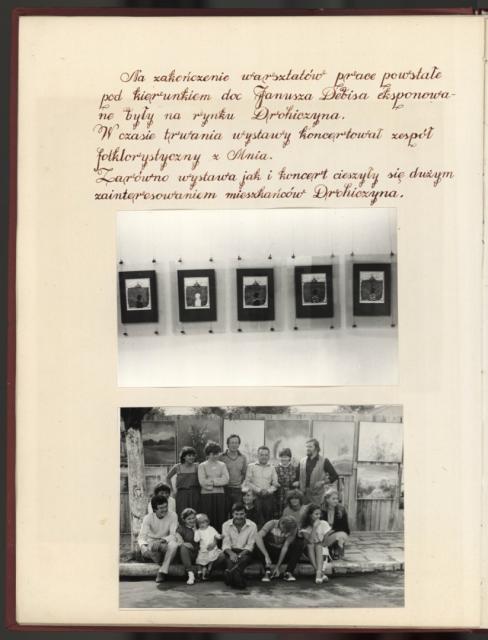 Na zakończenie warsztatów prace powstałe
pod kierunkiem doc Janusza Dębisa eksponowa-
ne były na rynku Drohiczyna.
W czasie trwania wystawy koncertował zespół
folklorystyczny z Mnia.
Zarówno wystawa jak i koncert cieszyły się dużym
zainteresowaniem mieszkańców Drohiczyna.